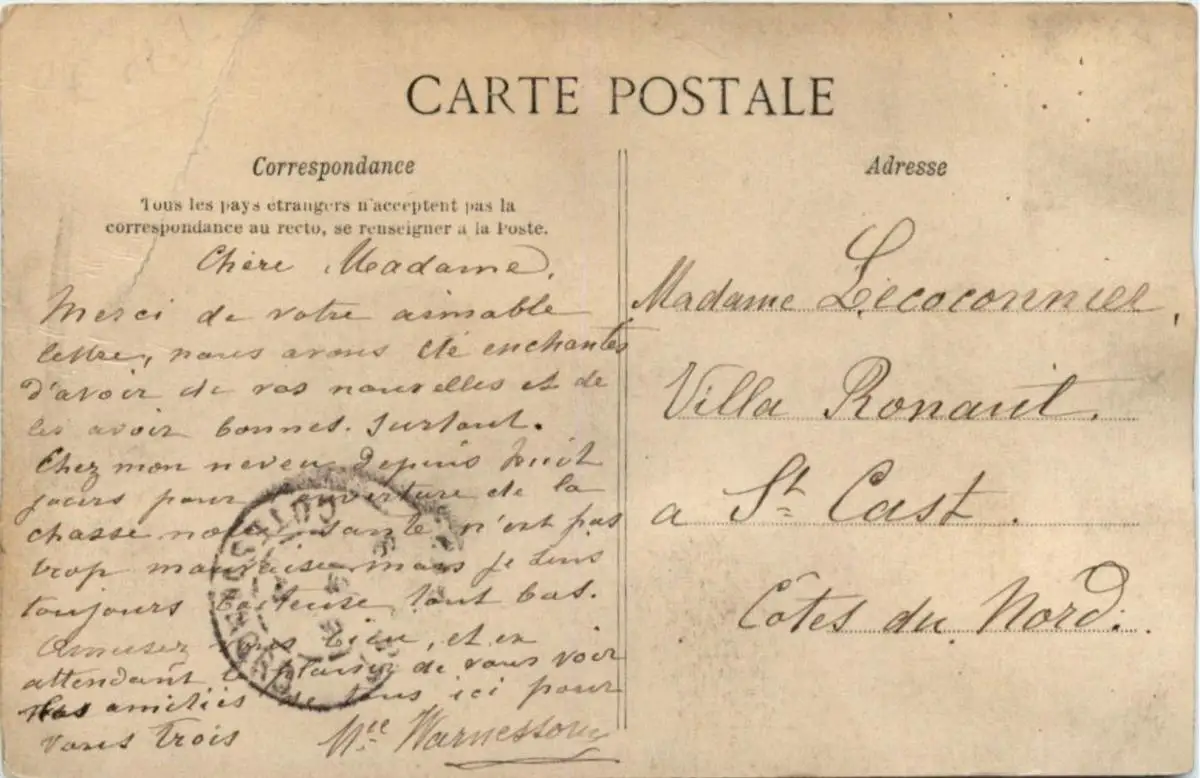 CARTE POSTALE
Correspondance
Tous les pays étrangers n'acceptent pas la
correspondance au recto, se renseigner à la Poste.
Chère Madame,
Merci de votre aimable
lettre, nous avons été enchantés
d'avoir de vos nouvelles et de
les avoir bonnes. Surtout.
Chez mon neveu depuis huit
jours pour l'ouverture de la
chasse notre santé n'est pas
trop mauvaise mais je suis
toujours boiteuse tout bas.
Amusez vous bien, et en
attendant le plaisir de vous voir
Nos amitiés de tous ici pour
vous trois
Adresse
Madame Lecoconnier,
Villa Ronault.
a St. Cast.
Côtes du Nord.